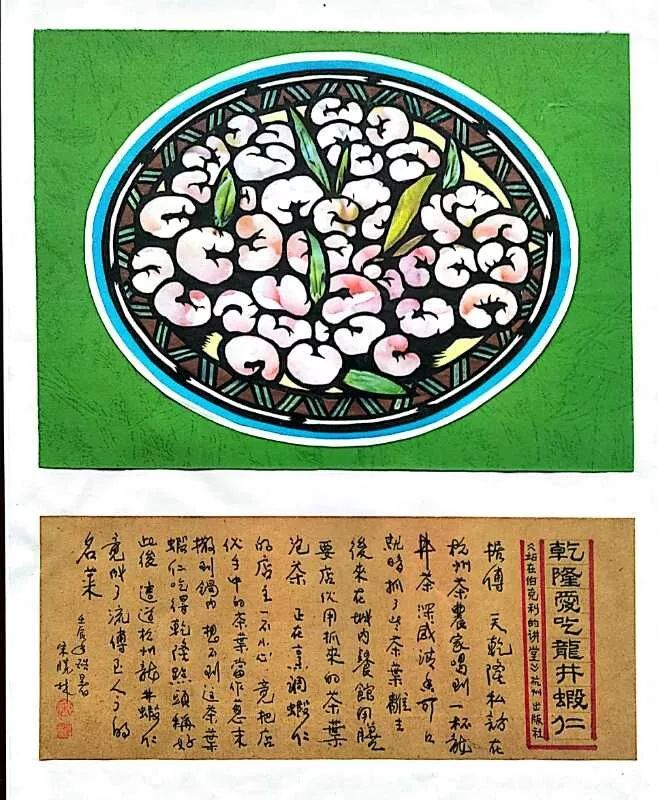 乾隆愛吃龍井蝦仁
《站在伯克利的讲堂》杭州出版社
据傳一天乾隆私訪在
杭州茶農家喝到一杯龍
井茶 深感清香可口
抓了些茶葉離去
後來在城内餐館用膳
要店伙用抓來的茶葉
泡茶 正在烹調蝦仁
的店主一不小心 竟把店
伙手中的茶葉當作葱末
撒到鍋内 想不到這茶葉
蝦仁吃得乾隆點頭稱好
此後 這道杭州龍井蝦仁
竟成了流傳的
名菜
壬辰年
宋曉林